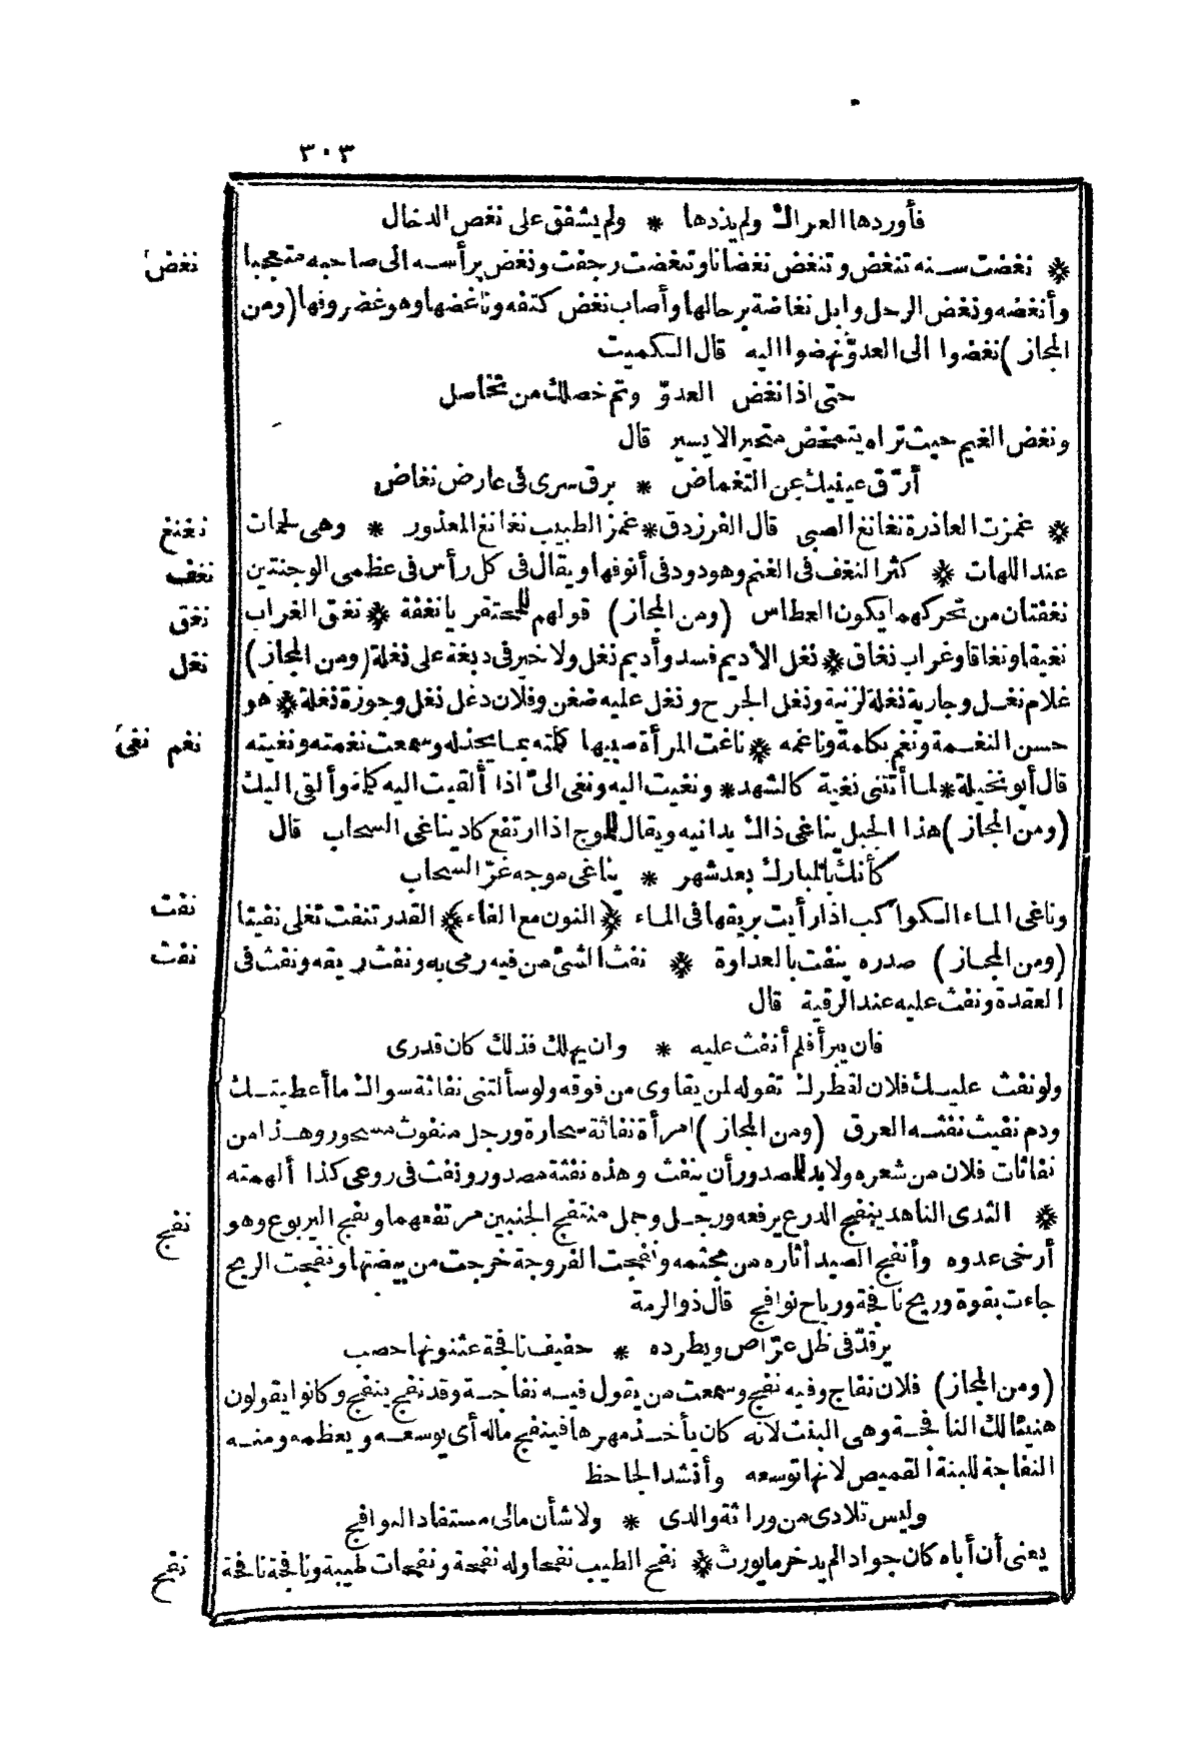 ٣٠٣
فأوردها العراك ولم يذدها * ولم يشفق على نغص الدخال
* نغضت سنه تنغض وتنغض نغضانا وتنغضت رجفت ونغض برأسه الى صاحبه متعجبا
نغض
وأنغضه ونغض الرحل وابل نغاضة برحالها وأصاب نغض كتفه وناغضها وهو غضروفها (ومن
المجاز) نغضوا الى العدوّ نهضوا اليه قال الكميت
حتى اذا نغض العدوّ وتم خصلك من تخاصل
ونغض الغيم حيث تراه يتمخض متحيرا لا يسير قال
أرّق عينيك عن التغماض * برق سرى فى عارض نغاض
* غمزت العاذرة نغانغ الصبى قال الفرزدق * غمز الطبيب نغانغ المعذور * وهى لحمات
نغنغ
عند اللهات * كثر النغف فى الغنم وهو دود فى أنوفها ويقال فى كل رأس فى عظمى الوجنتين
نغف
نغفتان من تحركهما يكون العطاس (ومن المجاز) قولهم للمحتقر يا نغفة * نغق الغراب
نغق
نغيقا ونغاقا وغراب نغاق * نغل الأديم فسد وأديم نغل ولا خير فى دبغة على نغلة (ومن المجاز)
نغل
غلام نغل وجارية نغلة لزنية ونغل الجرح ونغل عليه ضغن وفلان دغل نغل وجوزة نغلة * هو
حسن النغمة ونغم بكلمة وناغمه * ناغت المرأة صبيها كلمته بما يجذله وسمعت نغمته ونغيته
نغم نغى
قال أبو نخيلة * لما أتتنى نغية كالشهد * ونغيت اليه ونغى الىّ اذا ألقيت اليه كلمة وألقى اليك
(ومن المجاز) هذا الجبل يناغى ذاك يدانيه ويقال للموج اذا ارتفع كاد يناغى السحاب قال
كأنك بالمبارك بعد شهر * يناغى موجه غرّ السحاب
وناغى الماء الكواكب اذا رأيت بريقها فى الماء * (النون مع الفاء) * القدر تنفت تغلى نفيتا
نفت
(ومن المجاز) صدره ينفت بالعداوة * نفث الشئ من فيه رمى به ونفث ريقه ونفث فى
نفث
العقدة ونفث عليه عند الرقية قال
فان يبرأ فلم أنفث عليه * وان يهلك فذلك كان قدرى
ولو نفث عليك فلان لقطرك تقوله لمن يقاوى من فوقه ولو سألتنى نفاثة سواك ما أعطيتك
ودم نفيث نفثه العرق (ومن المجاز) امرأة نفاثة سحارة ورجل منفوث مسحور وهذا من
نفاثات فلان من شعره ولا بد للمصدور أن ينفث وهذه نفثة مصدور ونفث فى روعى كذا ألهمته
* الثدى الناهد ينفج الدرع يرفعه ورجل وجمل منتفج الجنبين مرتفعهما ونفج اليربوع وهو
نفج
أرخى عدوه وأنفج الصيد أثاره من مجثمه ونفجت الفروجة خرجت من بيضتها ونفجت الريح
جاءت بقوة وريح نافجة ورياح نوافج قال ذو الرمة
يرقدّ فى ظل عرّاص ويطرده * حفيف نافجة عثنونها حصب
(ومن المجاز) فلان نفاج وفيه نفج وسمعت من يقول فيه نفاجة وقد نفج ينفج وكانوا يقولون
هنيئا لك النافجة وهى البنت لانه كان يأخذ مهرها فينفج ماله أى يوسعه ويعظمه ومنه
النفاجة للبنة القميص لانها توسعه وأنشد الجاحظ
وليس تلادى من وراثة والدى * ولا شأن مالى مستفاد النوافج
يعنى أن أباه كان جوادا لم يدخر ما يورث * نفح الطيب نفحا وله نفحة ونفحات طيبة ونافجة نافحة
نفح